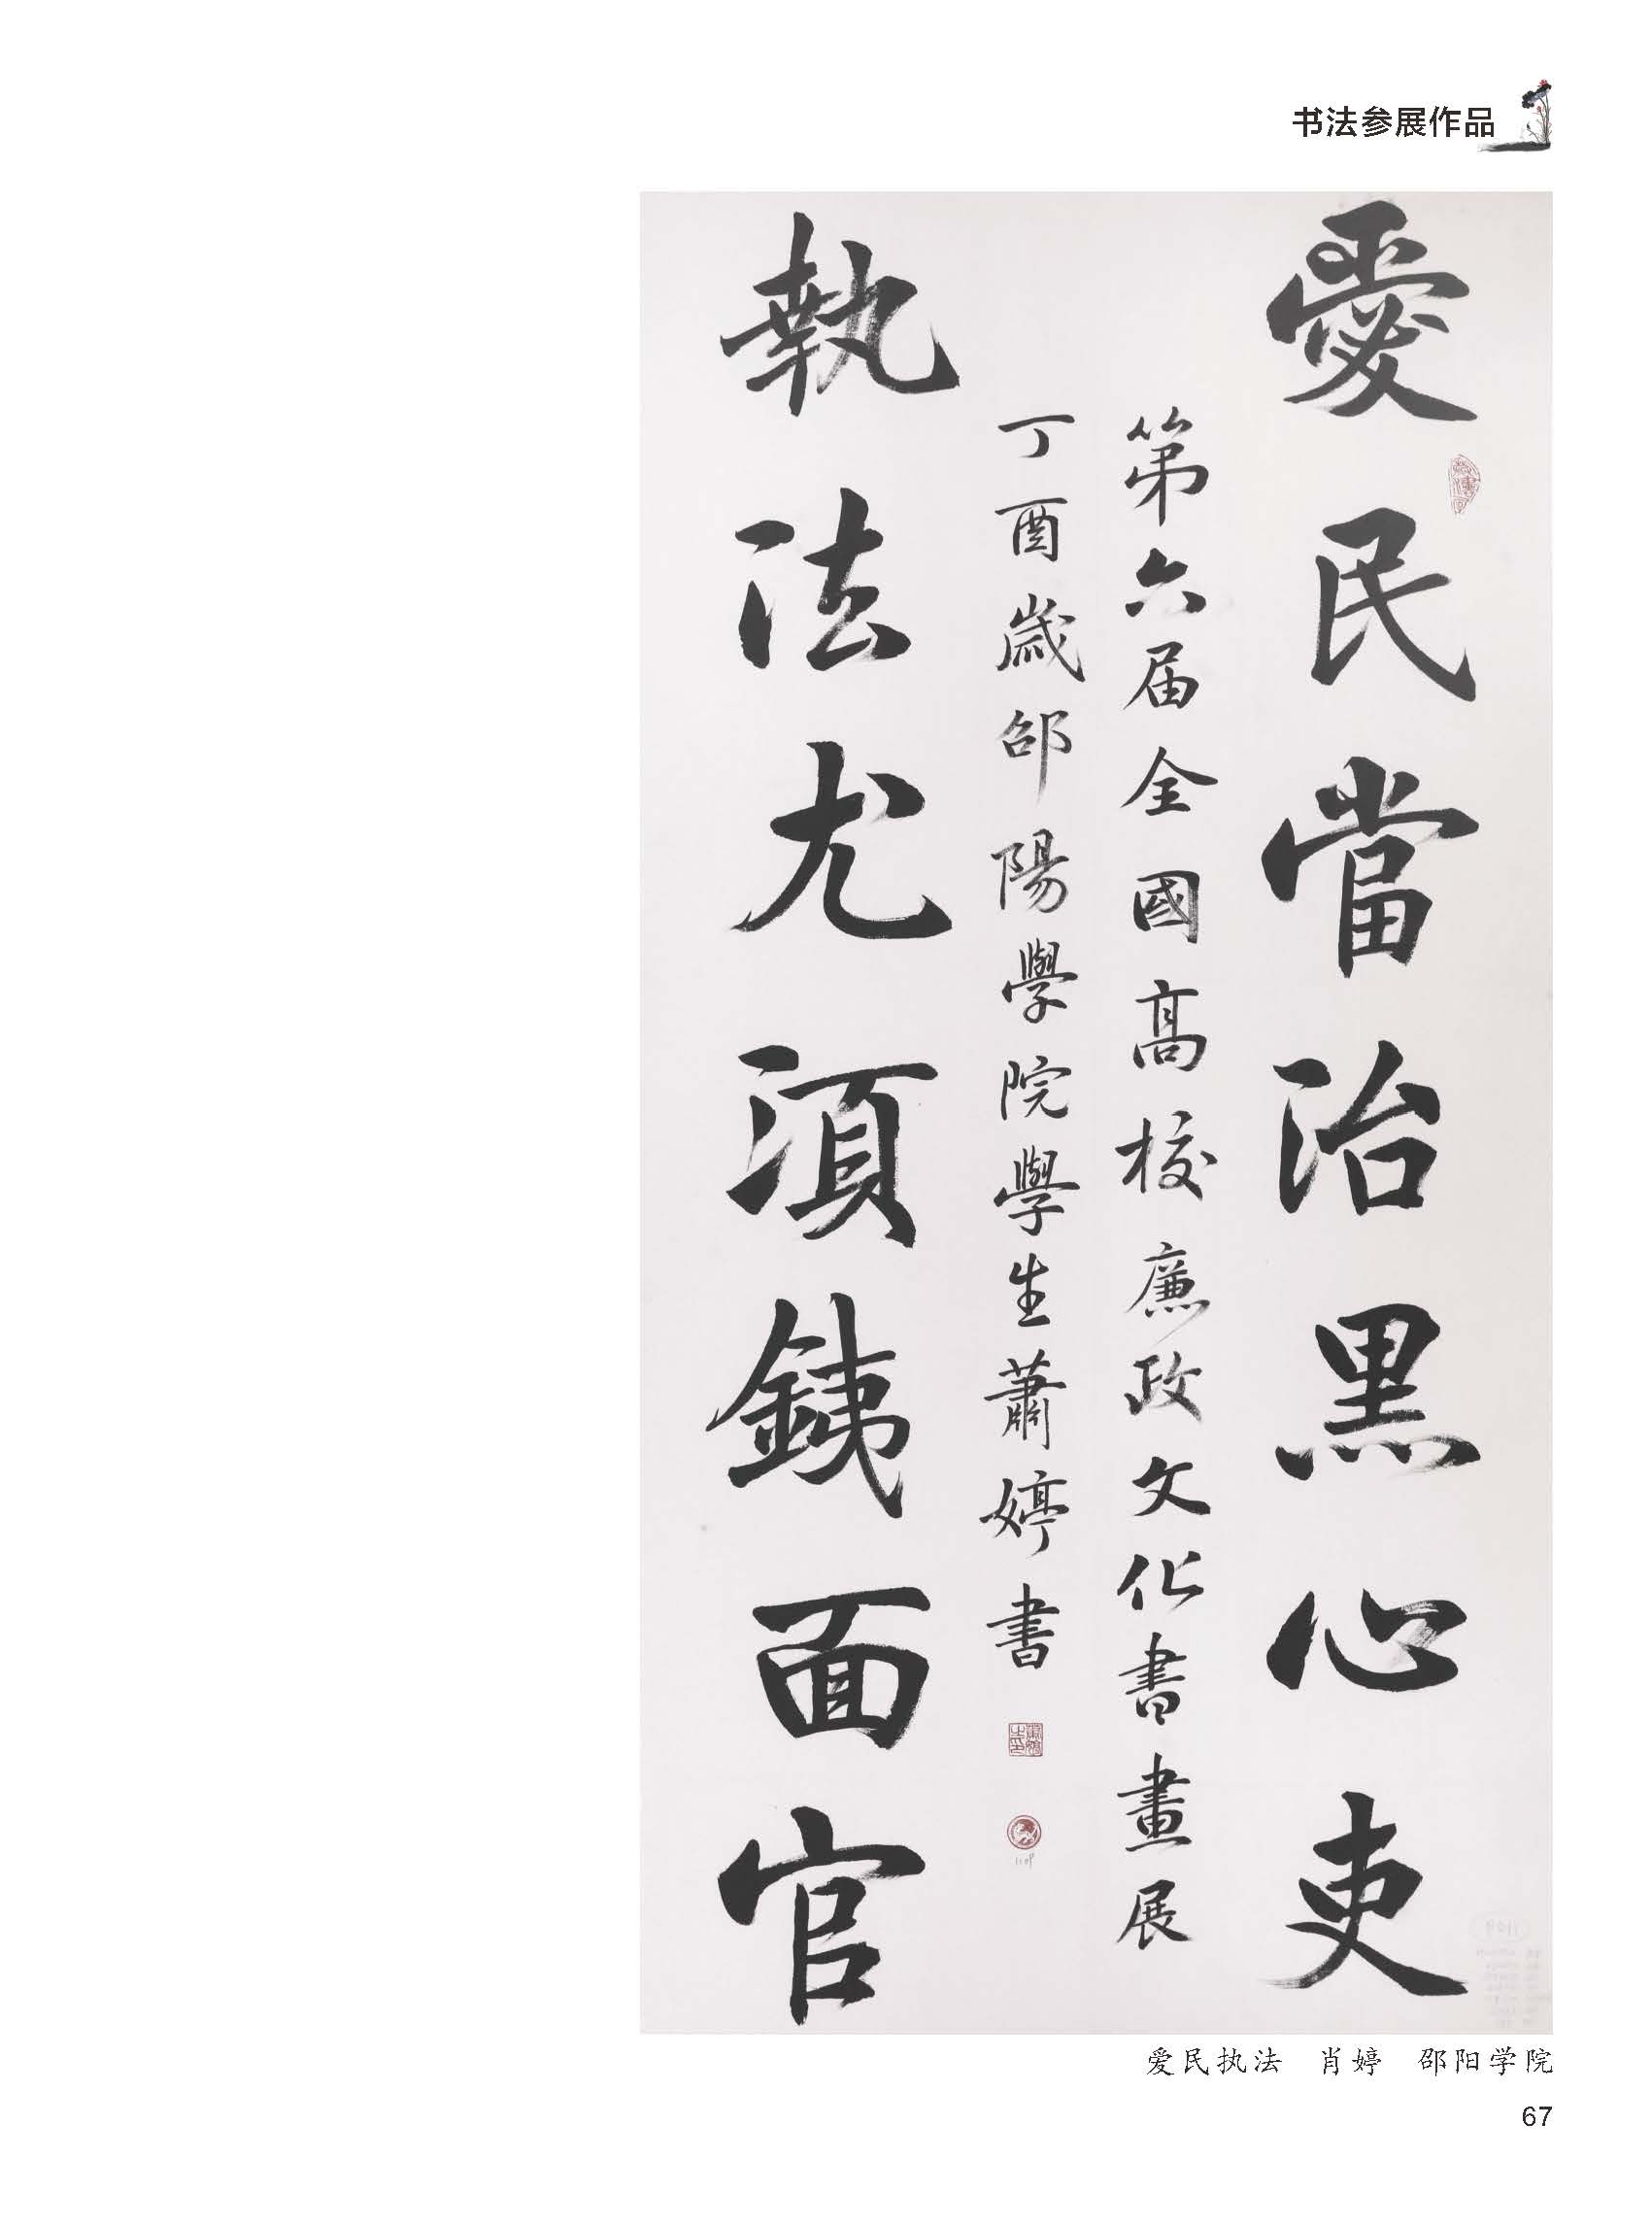 书法参展作品
愛民當治黑心吏
第六届全國高校廉政文化書畫展
丁酉歲邵陽學院學生蕭婷書
執法尤須銕面官
1109
爱民执法 肖婷 邵阳学院
67